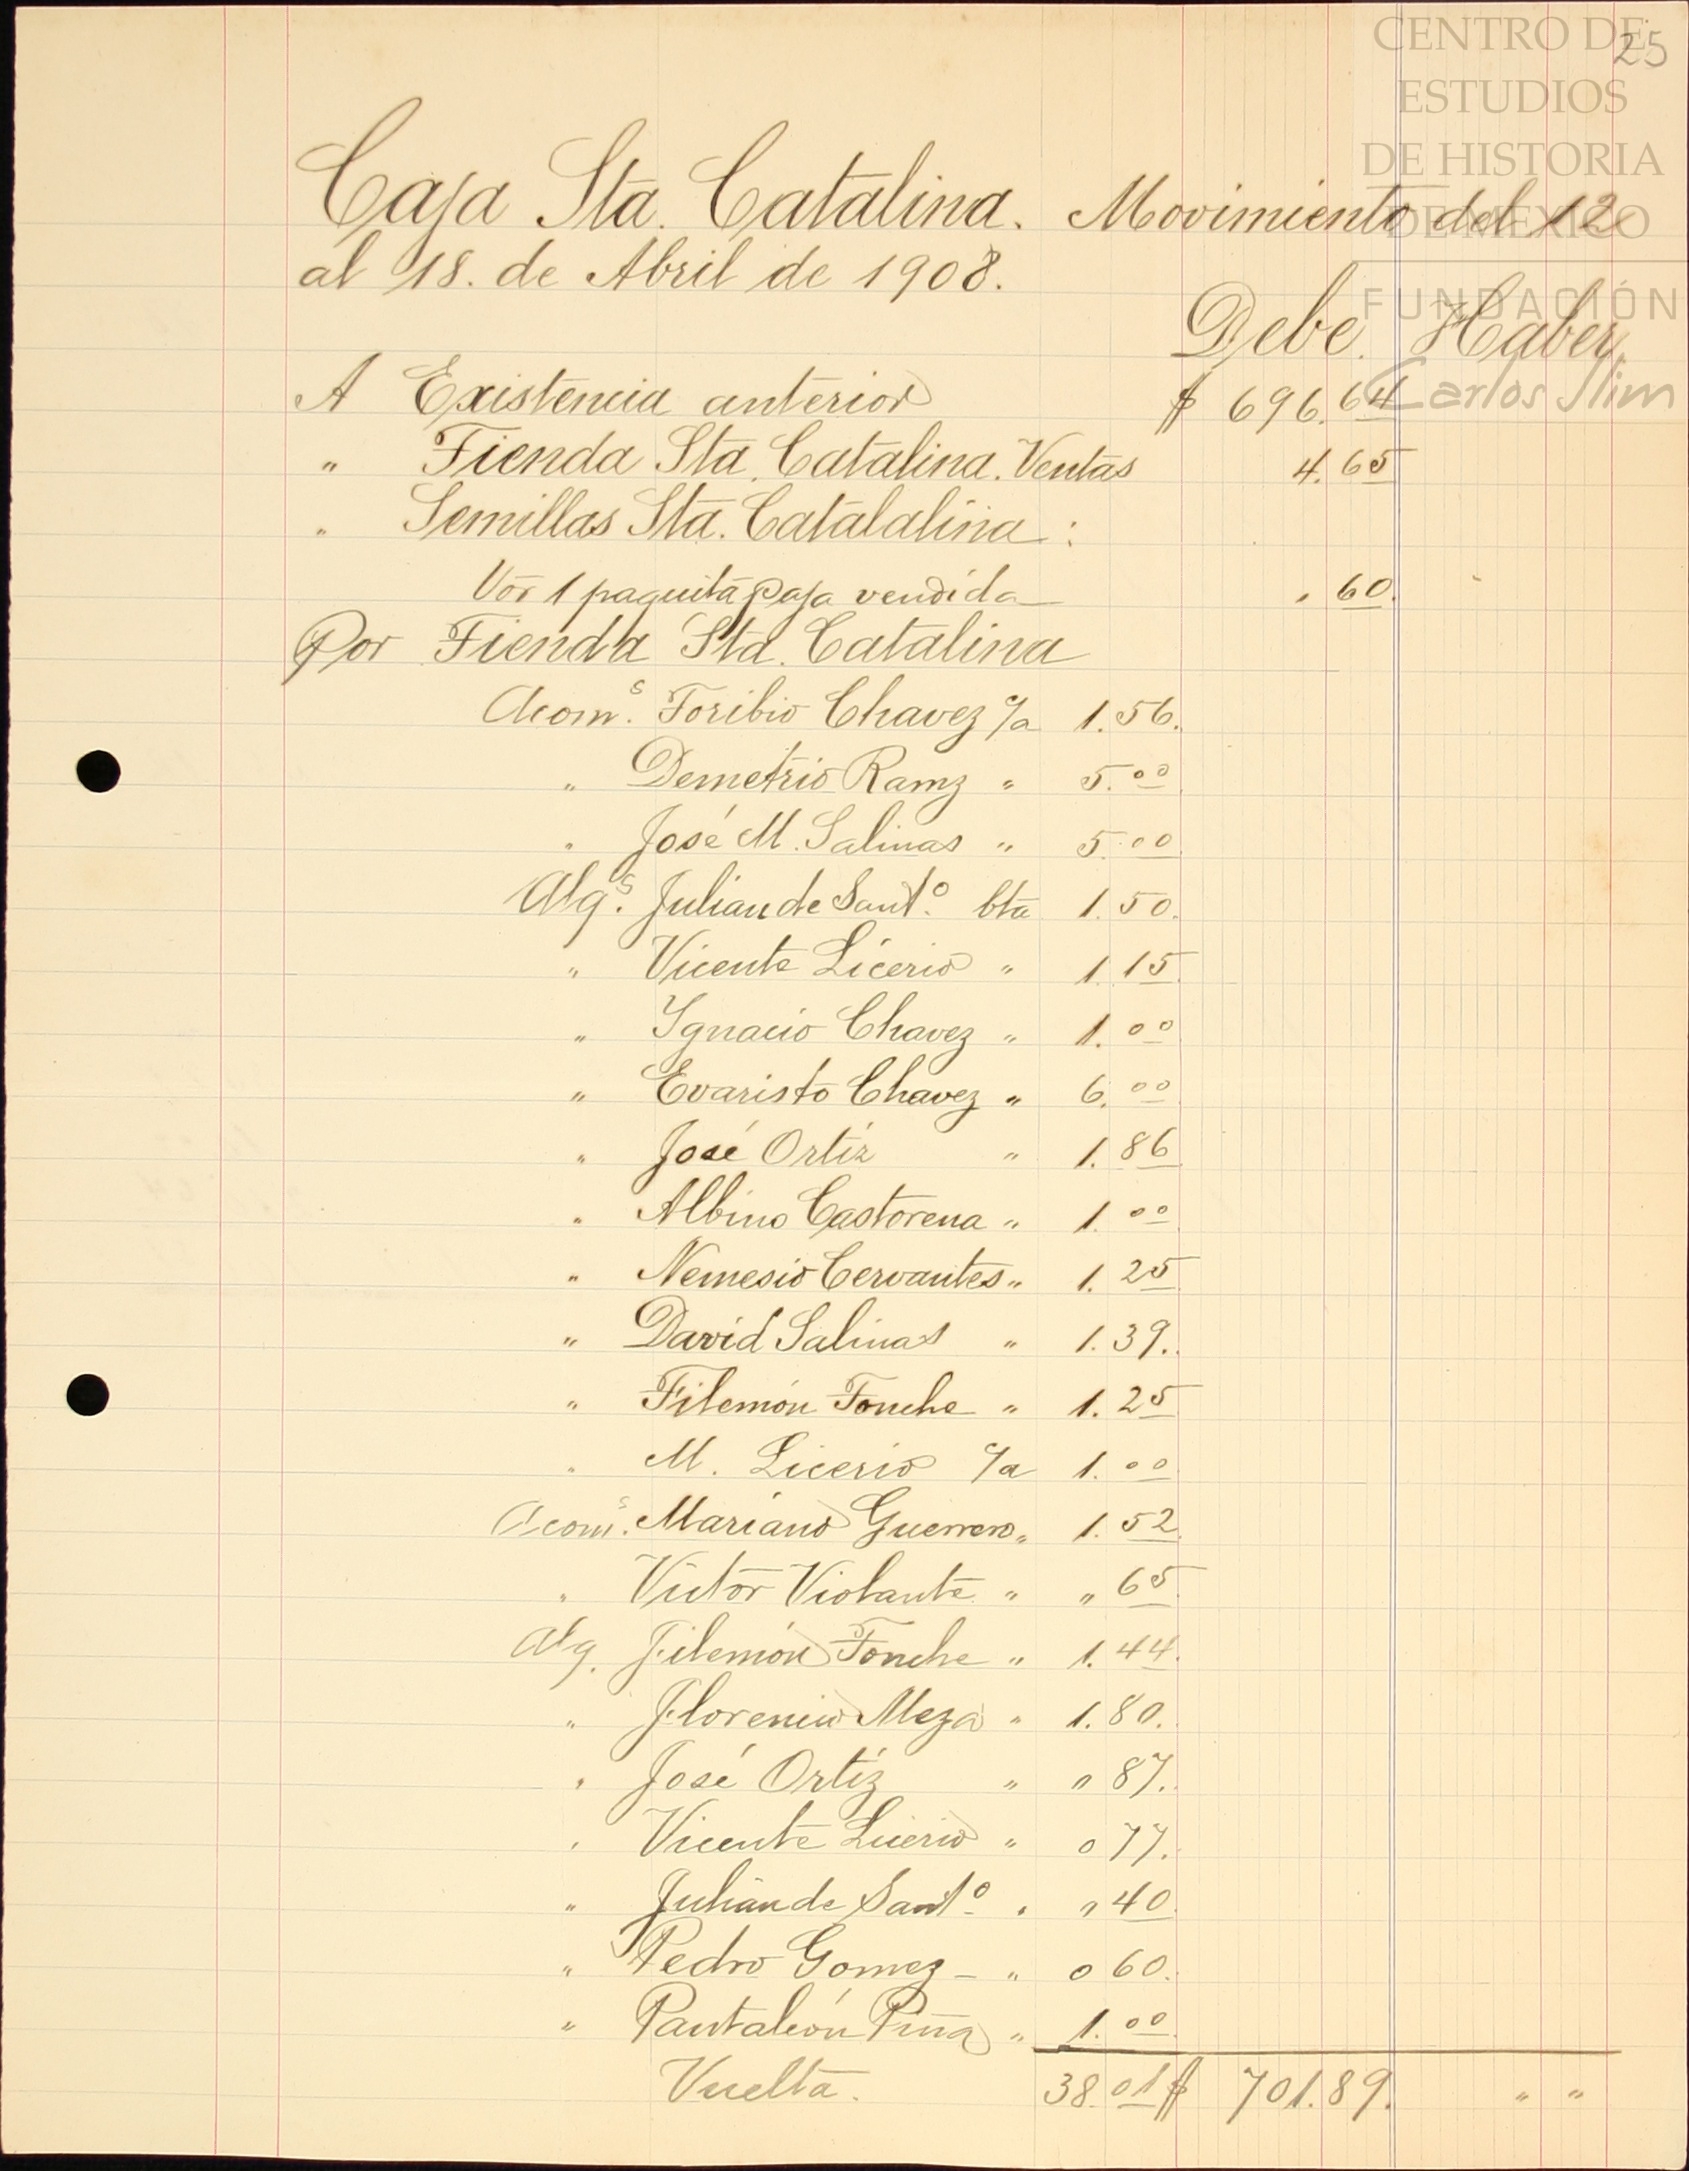 CENTRO DE
ESTUDIOS
DE HISTORIA
DE MEXICO
FUNDACIÓN
Carlos Slim
25
Caja Sta. Catalina. Movimiento del 12
al 18. de Abril de 1908.
Debe. Haber.
A Existencia anterior $ 696.64
" Tienda Sta. Catalina. Ventas 4.65
" Semillas Sta. Catalalina:
Vor 1 paquita paja vendida " 60.
Por Tienda Sta. Catalina
Acom.s Toribio Chavez c/a 1.56.
" Demetrio Ramz " 5.00
" José M. Salinas " 5.00
Alg.s Julian de Sant.o cta 1.50.
" Vicente Licerio " 1.15
" Ygnacio Chavez " 1.00
" Evaristo Chavez " 6.00
" José Ortiz " 1.86
" Albino Castorena " 1.00
" Nemesio Cervantes " 1.25
" David Salinas " 1.39.
" Filemón Tonche " 1.25
" M. Licerio c/a 1.00
Acom.s Mariano Guerrero " 1.52
" Victor Violante " " 65
Alg. Filemón Tonche " 1.44.
" Florencio Meza " 1.80.
" José Ortiz " " 87.
" Vicente Licerio " 0 77.
" Julián de Sant.o " " 40
" Pedro Gomez - " 0 60.
" Pantaleón Piña " 1.00
Vuelta. 38.01 $ 701.89. " "